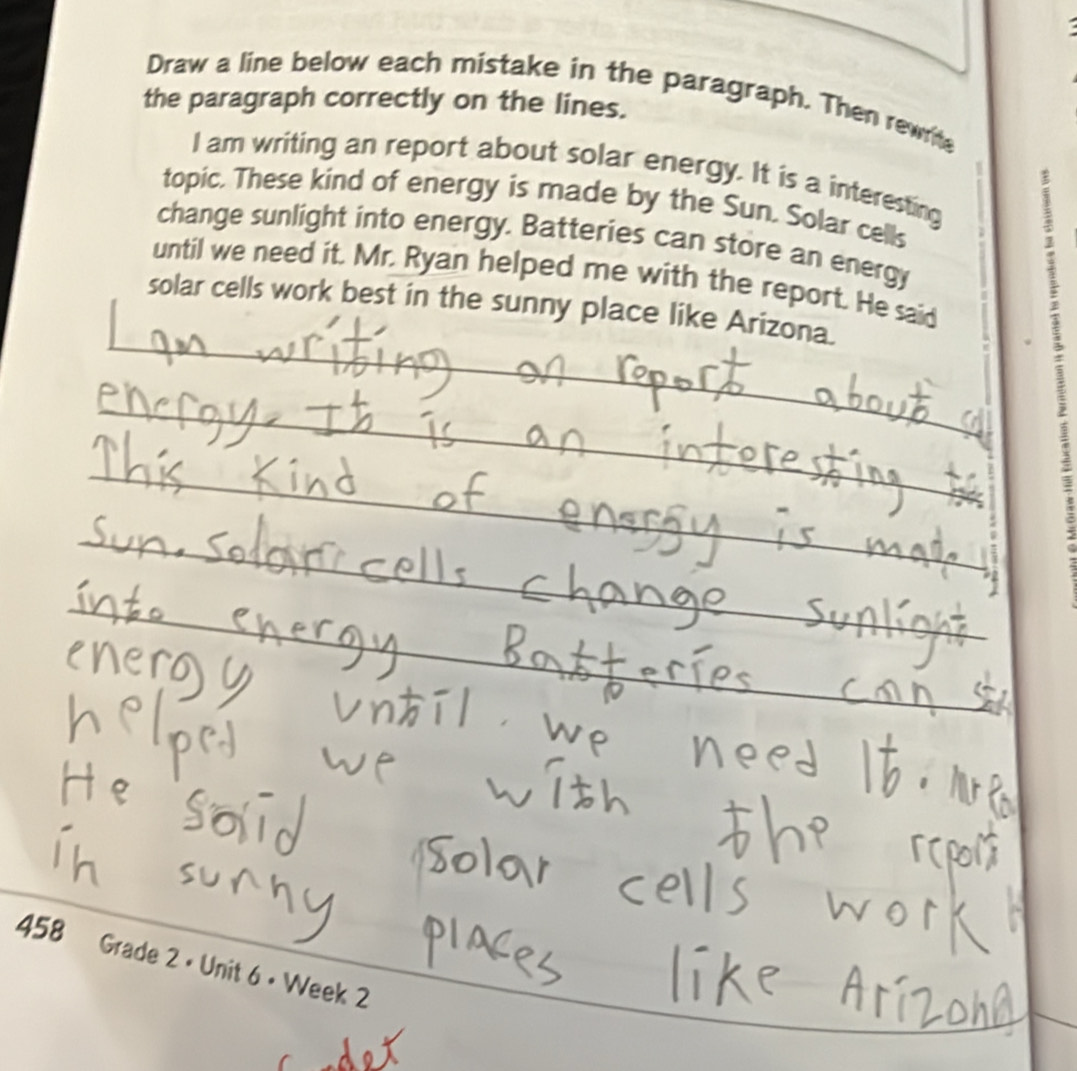 Draw a line below each mistake in the paragraph. Then rewrite
the paragraph correctly on the lines.
I am writing an report about solar energy. It is a interesting
topic. These kind of energy is made by the Sun. Solar cells
change sunlight into energy. Batteries can store an energy
until we need it. Mr. Ryan helped me with the report. He said
solar cells work best in the sunny place like Arizona.
I am writing an report about
energy. It is an interesting
This kind of energy is made
Sun. Solar cells change sunlight
into energy Batteries can
energy until. we need It. Mr
helped we with the report
He said solar cells work
in sunny places like Arizona
458 Grade 2 • Unit 6 • Week 2